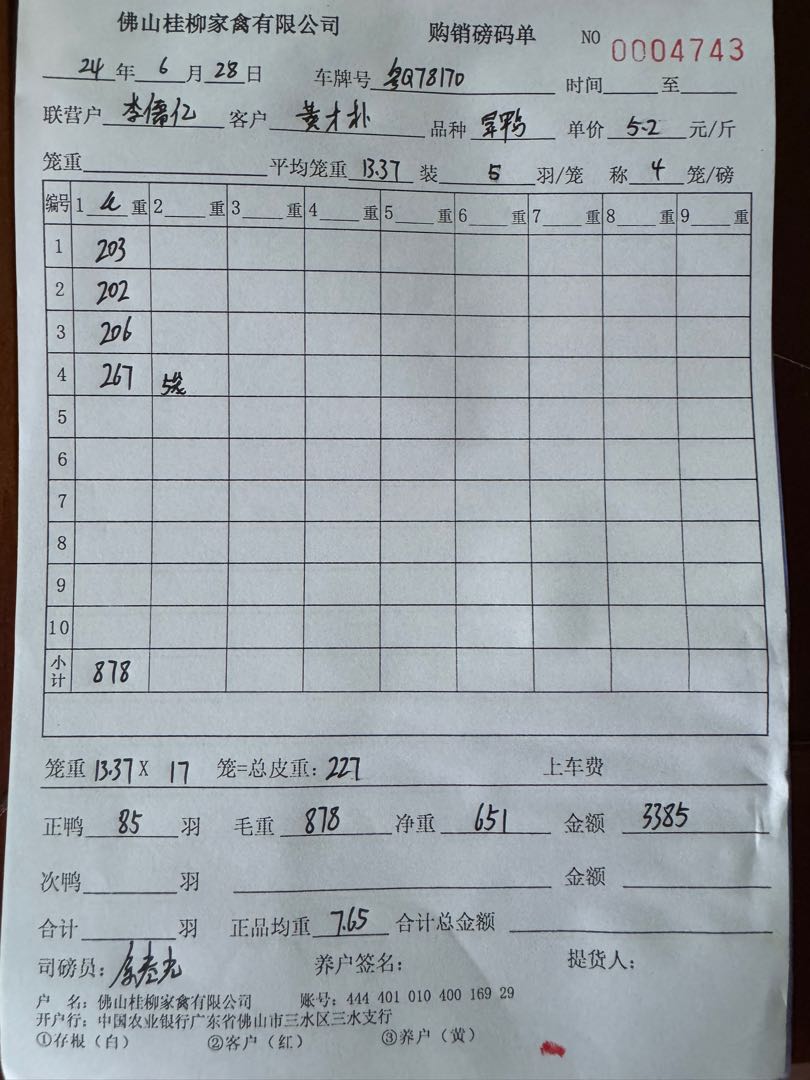 佛山桂柳家禽有限公司 购销磅码单 NO 0004743
24年6月28日 车牌号 粤Q78170 时间 至
联营户 李儒亿 客户 黄才朴 品种 军鸭 单价 5.2 元/斤
笼重 平均笼重 13.37 装 5 羽/笼 称 4 笼/磅
编号 1 公 重 2 重 3 重 4 重 5 重 6 重 7 重 8 重 9 重
1 203
2 202
3 206
4 267 5笼
5
6
7
8
9
10
小计 878
笼重 13.37 X 17 笼=总皮重: 227 上车费
正鸭 85 羽 毛重 878 净重 651 金额 3385
次鸭 羽 金额
合计 羽 正品均重 7.65 合计总金额
司磅员: 养户签名: 提货人:
户 名: 佛山桂柳家禽有限公司 账号: 444 401 010 400 169 29
开户行: 中国农业银行广东省佛山市三水区三水支行
①存根(白) ②客户(红) ③养户(黄)